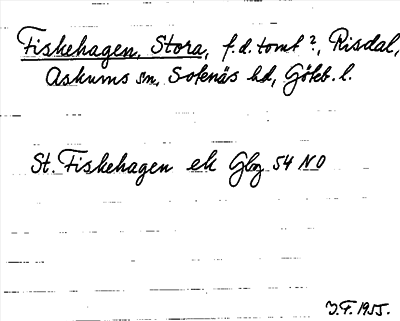 Fiskehagen, Stora, f.d. tomt ?, Risdal,
Askums sn, Sotenäs hd, Göteb. l.
St. Fiskehagen ek Gbg 54 NO
J.F. 1955.